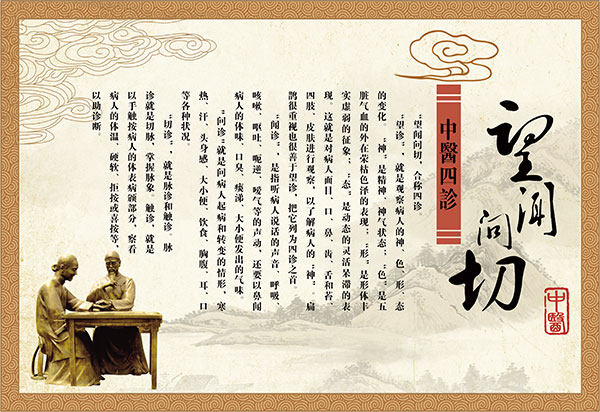 望闻问切
中醫
中醫四診
“望闻问切，合称四诊
“望诊”，就是观察病人的神、色、形、态
的变化。“神”是精神、神气状态；“色”是五
脏气血的外在荣枯色泽的表现；“形”是形体丰
实虚弱的征象；“态”是动态的灵活呆滞的表
现。这就是对病人面目、口、鼻、齿、舌和苔、
四肢、皮肤进行观察，以了解病人的“神”。扁
鹊很重视也很善于望诊，把它列为四诊之首。
“闻诊”，是指听病人说话的声音、呼吸、
咳嗽、呕吐、呃逆、嗳气等的声动，还要以鼻闻
病人的体味、口臭、痰涕、大小便发出的气味。
“问诊”就是问病人起病和转变的情形，寒
热、汗、头身感、大小便、饮食、胸腹、耳、口
等各种状况
“切诊”，就是脉诊和触诊。脉
诊就是切脉，掌握脉象。触诊，就是
以手触按病人的体表病颐部分，察看
病人的体温、硬软、拒按或喜按等，
以助诊断。